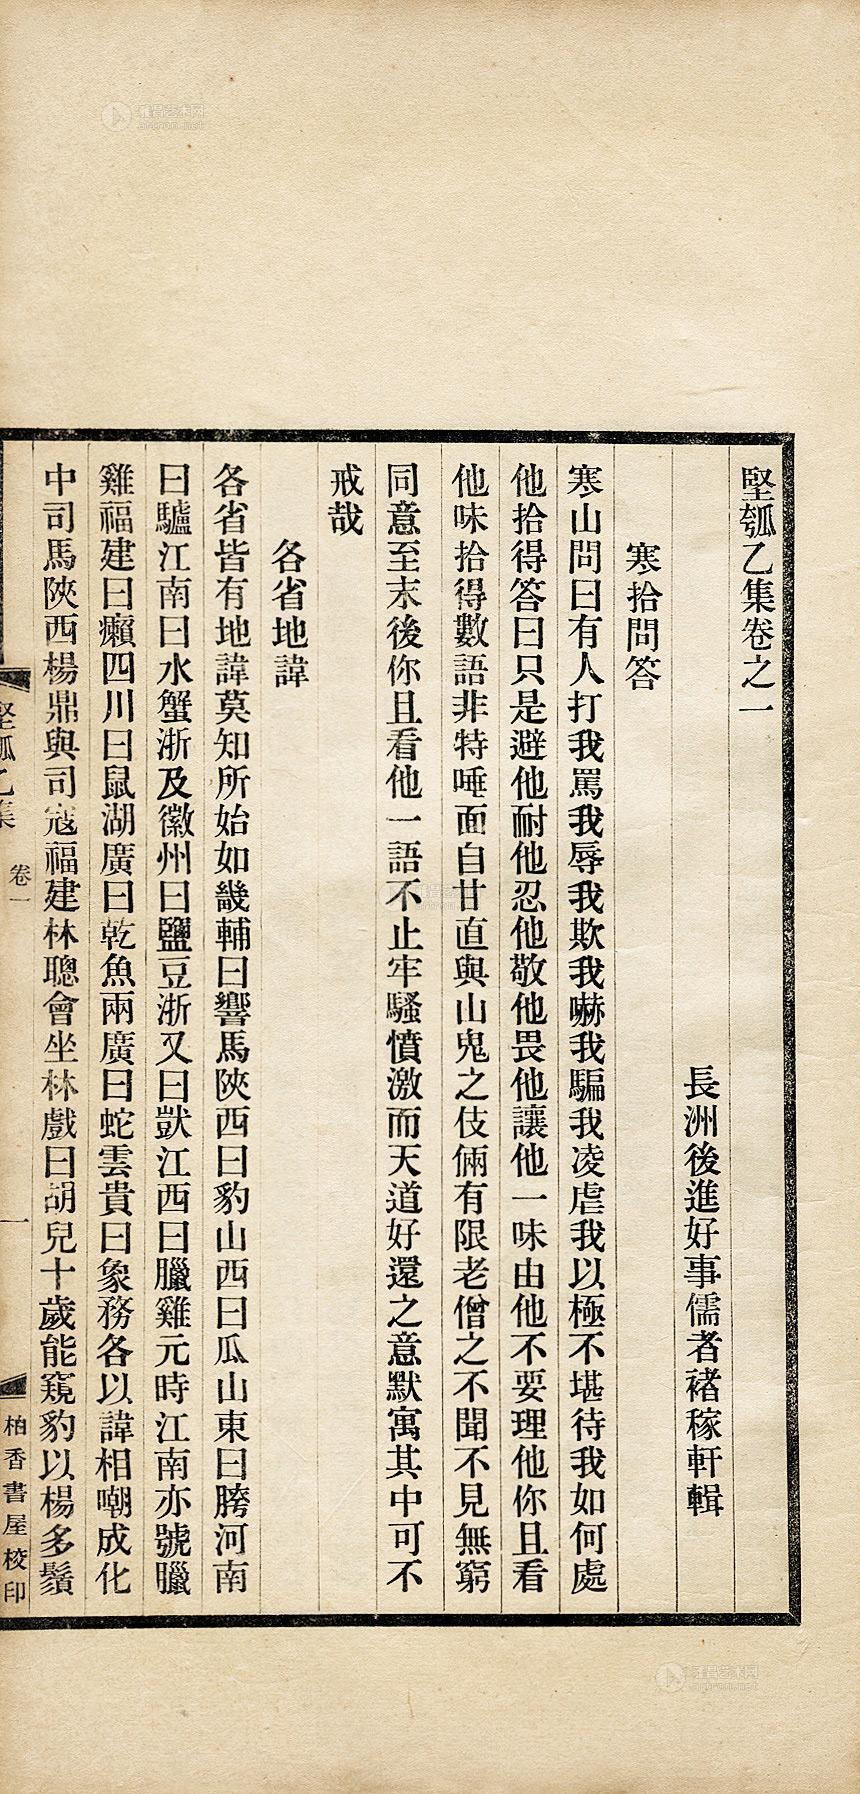 堅瓠乙集卷之一
長洲後進好事儒者褚稼軒輯
寒拾問答
寒山問曰有人打我罵我辱我欺我嚇我騙我凌虐我以極不堪待我如何處
他拾得答曰只是避他耐他忍他敬他畏他讓他一味由他不要理他你且看
他味拾得數語非特唾面自甘直與山鬼之伎倆有限老僧之不聞不見無窮
同意至末後你且看他一語不止牢騷憤激而天道好還之意默寓其中可不
戒哉
各省地諱
各省皆有地諱莫知所始如畿輔曰響馬陝西曰豹山西曰瓜山東曰胯河南
曰驢江南曰水蟹浙及徽州曰鹽豆浙又曰獃江西曰臘雞元時江南亦號臘
雞福建曰癩四川曰鼠湖廣曰乾魚兩廣曰蛇雲貴曰象務各以諱相嘲成化
中司馬陝西楊鼎與司寇福建林聰會坐林戲曰胡兒十歲能窺豹以楊多鬚
堅瓠乙集 卷一 一 柏香書屋校印
雅昌艺术网
artron.net
雅昌艺术网
artron.net